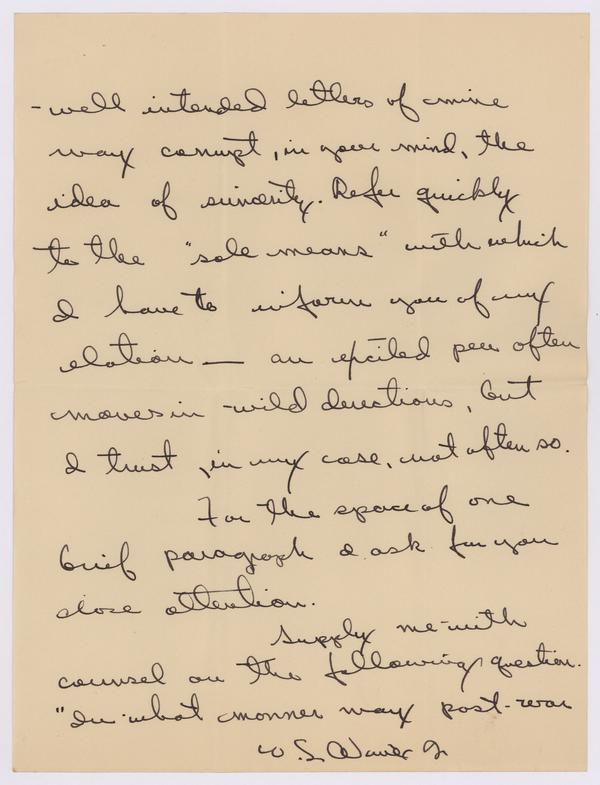 well intended letters of mine
may corrupt, in your mind, the
idea of sincerity. Refer quickly
to the "sole means" with which
I have to inform you of my
elation — an excited pen often
moves in wild directions, but
I trust, in my case, not often so.
For the space of one
brief paragraph I ask for your
close attention.
Supply me with
counsel on the following question.
"In what manner may post-war
W. S. Jr